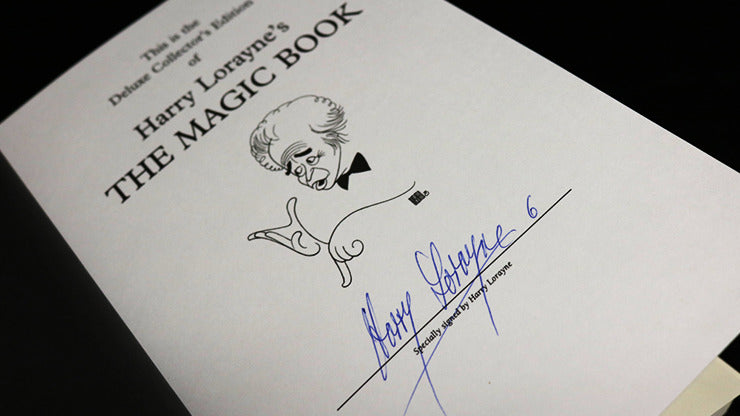 This is the
Deluxe Collector's Edition
of
Harry Lorayne's
THE MAGIC BOOK
Harry Lorayne 6
Specially signed by Harry Lorayne